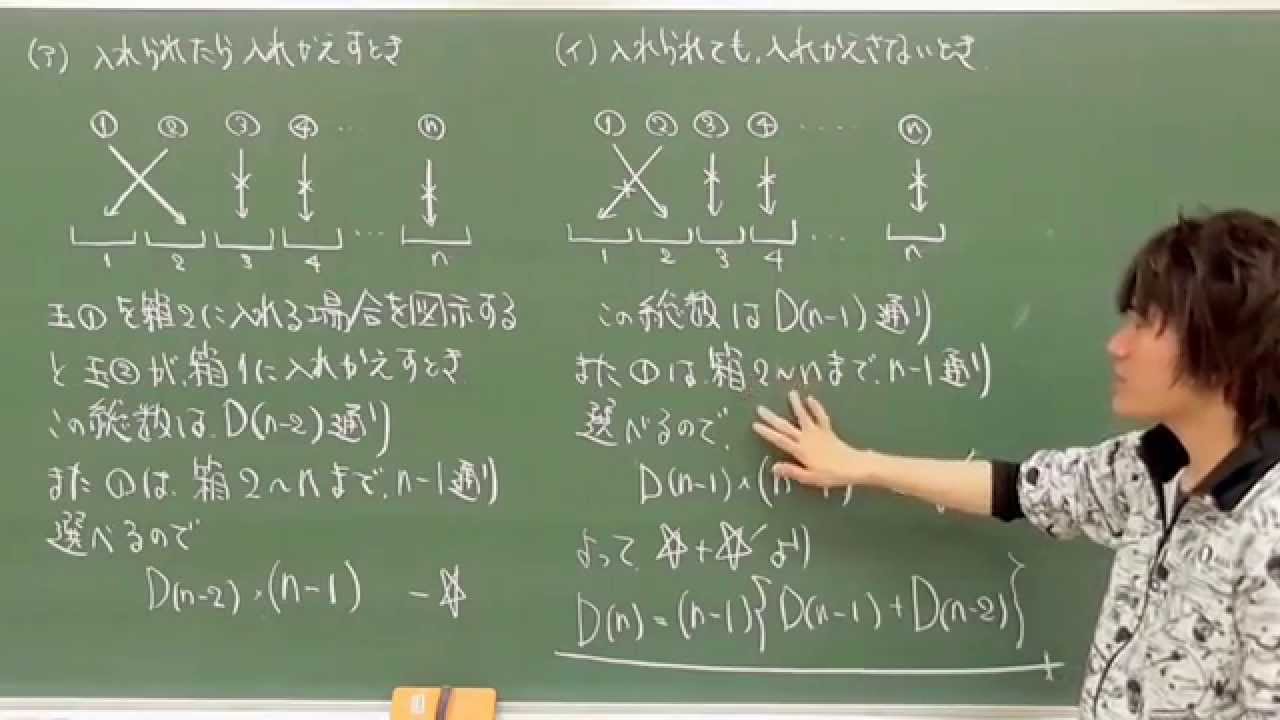 (ア) 入れられたら入れかえすとき
① ② ③ ④ … ⓝ
1 2 3 4 … n
玉①を箱2に入れる場合を図示する
と玉②が、箱1に入れかえすとき
この総数は、D(n-2)通り
また①は、箱2~nまで、n-1通り
選べるので
D(n-2)×(n-1) -☆
(イ) 入れられても、入れかえさないとき
① ② ③ ④ …. ⓝ
1 2 3 4 … n
この総数はD(n-1)通り
また①は、箱2~nまで、n-1通り
選べるので、
D(n-1)×(n
よって、☆+☆'より
D(n)=(n-1){D(n-1)+D(n-2)}